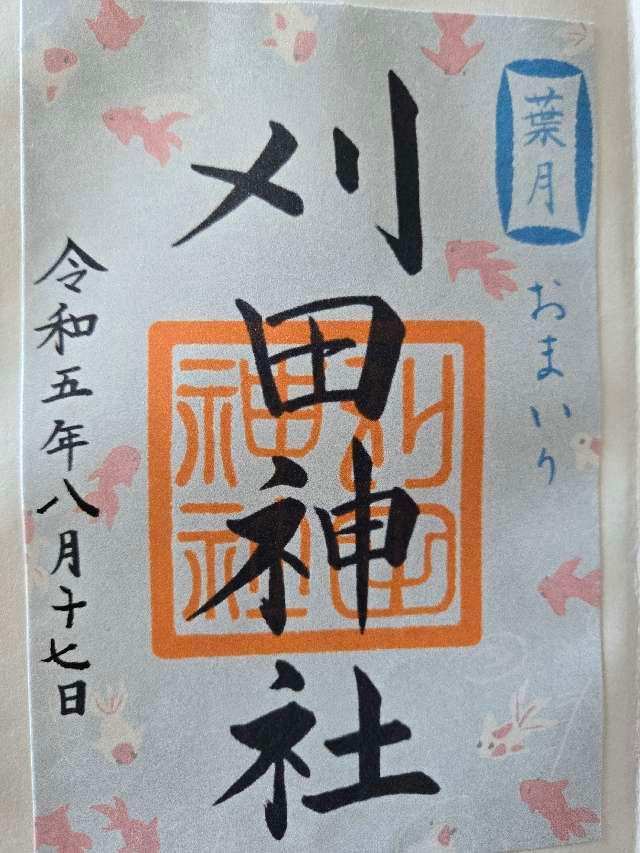 葉月
おまいり
刈田神社
刈田神社
令和五年八月十七日